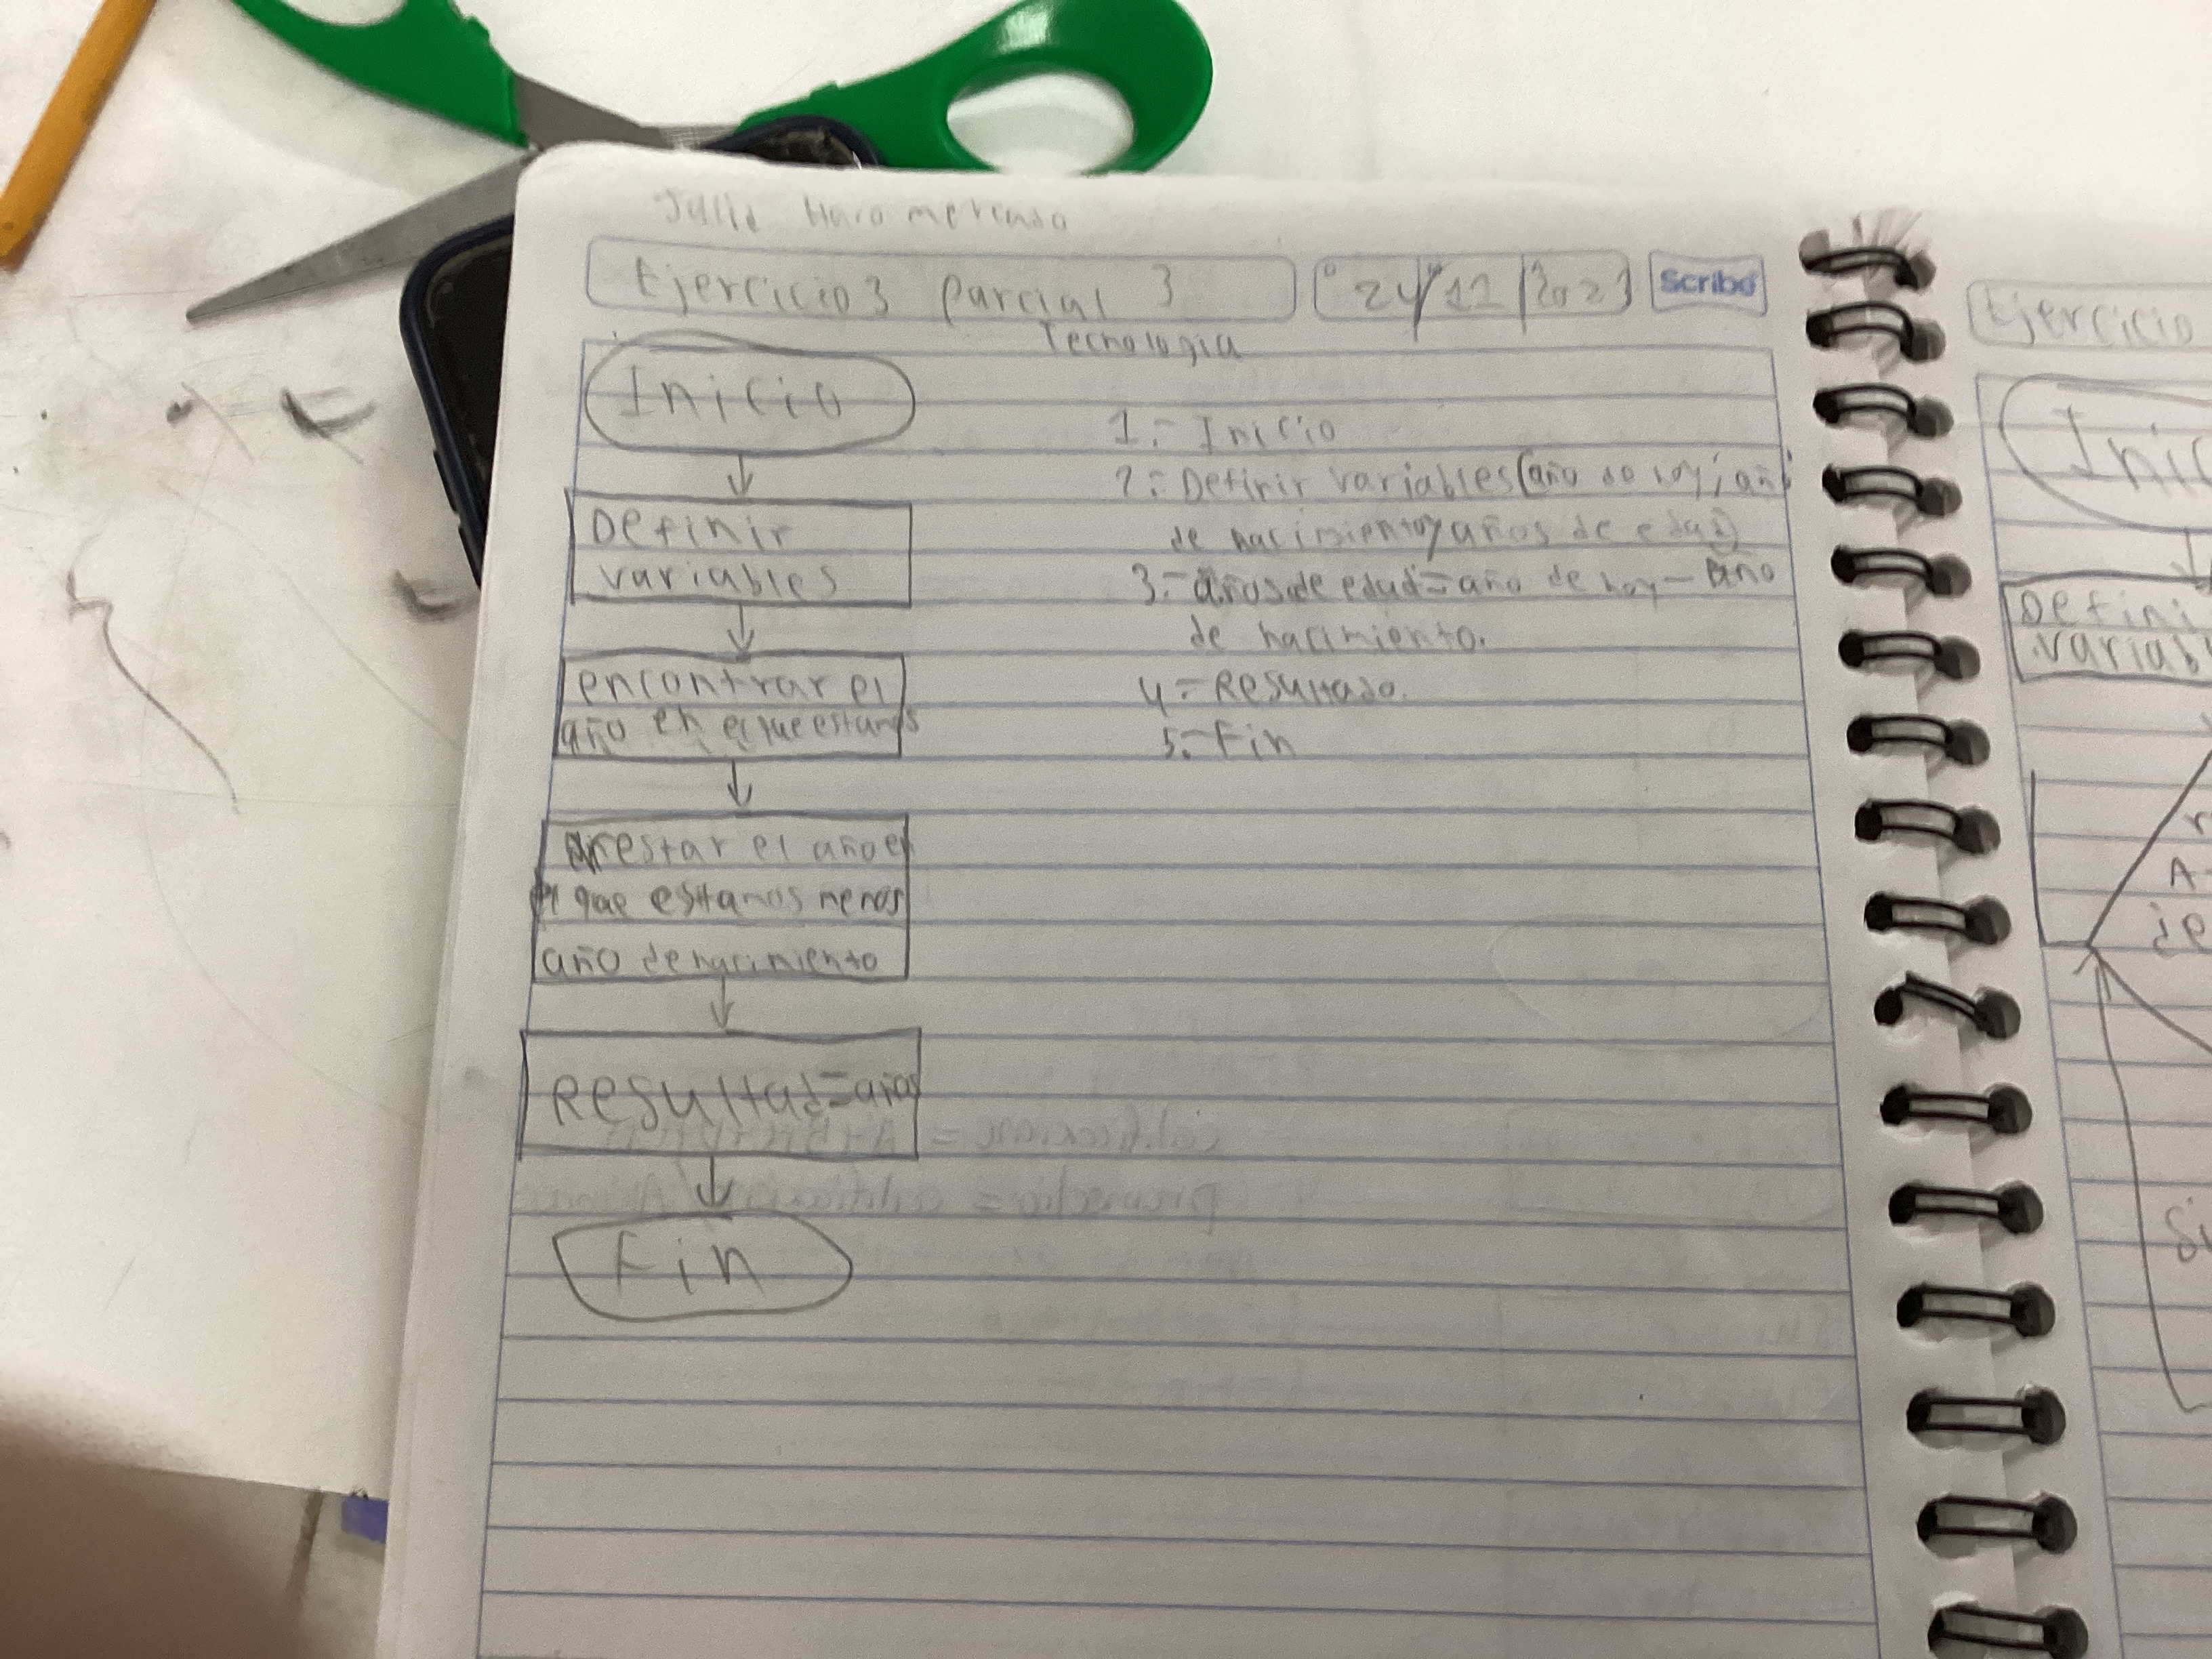 Haro mercado
Ejercicio 3 Parcial 3
24/11/2023
Scribe
Tecnologia
Inicio
Definir
variables
encontrar el
año en el que estamos
restar el año en
el que estamos menos
año de nacimiento
Resultad=años
Fin
1.- Inicio
2.- Definir variables(año de hoy, año
de nacimiento y años de edad)
3.- años de edad=año de hoy - año
de nacimiento.
4.- Resultado.
5.- Fin
Ejercicio
Inic
Defini
variab
r
A-
¿e
Si